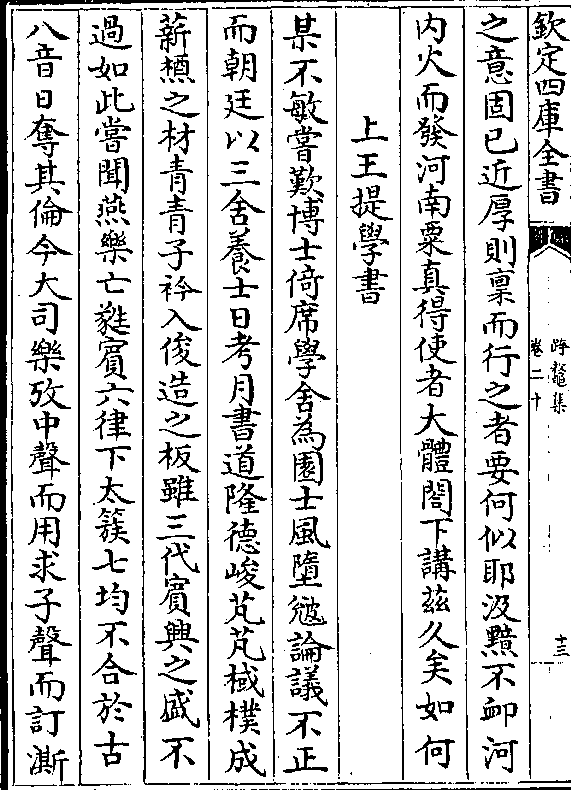 欽定四庫全書
跨鼇集
卷二十
十三
之意固已近厚則稟而行之者要何似耶汲黯不䘏河
内火而發河南粟真得使者大體閤下講兹久矣如何
上王提學書
某不敏嘗歎博士倚席學舍為園士風墮窳論議不正
而朝廷以三舍養士日考月書道隆德峻芃芃棫樸成
薪槱之材青青子衿入俊造之板雖三代賓興之盛不
過如此嘗聞燕樂亡蕤賓六律下太簇七均不合於古
八音日奪其倫今大司樂攷中聲而用求子聲而訂澌